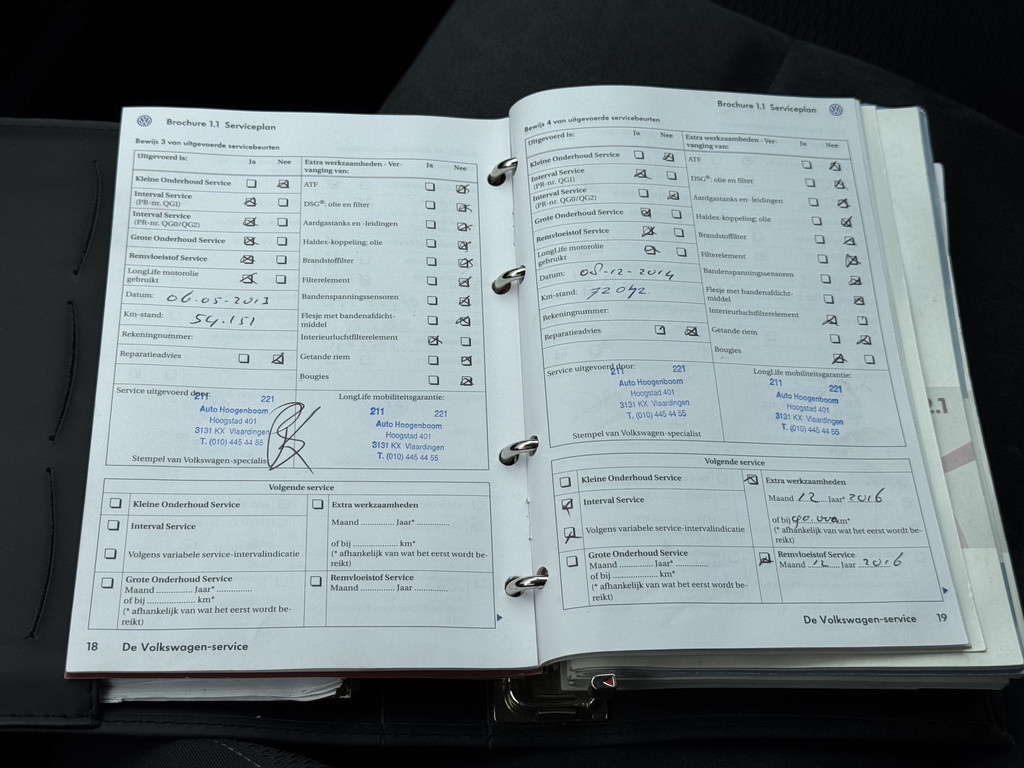 Brochure 1.1 Serviceplan
Bewijs 3 van uitgevoerde servicebeurten
Uitgevoerd is: Ja Nee Extra werkzaamheden - Ver-
vanging van: Ja Nee
Kleine Onderhoud Service ATF
Interval Service
(PR-nr. QG1) DSG®: olie en filter
Interval Service
(PR-nr. QG0/QG2) Aardgastanks en -leidingen
Grote Onderhoud Service Haldex-koppeling: olie
Remvloeistof Service Brandstoffilter
LongLife motorolie
gebruikt Filterelement
Datum: 06-05-2013 Bandenspanningssensoren
Km-stand: 54.151 Flesje met bandenafdicht-
middel
Rekeningnummer: Interieurluchtfilterelement
Reparatieadvies Getande riem
Bougies
Service uitgevoerd door: LongLife mobiliteitsgarantie:
211 221
Auto Hoogenboom
Hoogstad 401
3131 KX Vlaardingen
T. (010) 445 44 55
211 221
Auto Hoogenboom
Hoogstad 401
3131 KX Vlaardingen
T. (010) 445 44 55
Stempel van Volkswagen-specialist
Volgende service
Kleine Onderhoud Service
Interval Service
Volgens variabele service-intervalindicatie
Grote Onderhoud Service
Maand .............. Jaar* ..............
of bij .................. km*
(* afhankelijk van wat het eerst wordt be-
reikt)
Extra werkzaamheden
Maand ............. Jaar* .............
of bij .................. km*
(* afhankelijk van wat het eerst wordt be-
reikt)
Remvloeistof Service
Maand ............. Jaar .............
18 De Volkswagen-service
Brochure 1.1 Serviceplan
Bewijs 4 van uitgevoerde servicebeurten
Uitgevoerd is: Ja Nee Extra werkzaamheden - Ver-
vanging van: Ja Nee
Kleine Onderhoud Service ATF
Interval Service
(PR-nr. QG1) DSG®: olie en filter
Interval Service
(PR-nr. QG0/QG2) Aardgastanks en -leidingen
Grote Onderhoud Service Haldex-koppeling: olie
Remvloeistof Service Brandstoffilter
LongLife motorolie
gebruikt Filterelement
Datum: 08-12-2014 Bandenspanningssensoren
Km-stand: 72042. Flesje met bandenafdicht-
middel
Rekeningnummer: Interieurluchtfilterelement
Reparatieadvies Getande riem
Bougies
Service uitgevoerd door: LongLife mobiliteitsgarantie:
211 221
Auto Hoogenboom
Hoogstad 401
3131 KX Vlaardingen
T. (010) 445 44 55
211 221
Auto Hoogenboom
Hoogstad 401
3131 KX Vlaardingen
T. (010) 445 44 55
Stempel van Volkswagen-specialist
Volgende service
Kleine Onderhoud Service
Interval Service
Volgens variabele service-intervalindicatie
Grote Onderhoud Service
Maand .............. Jaar* ..............
of bij .................. km*
(* afhankelijk van wat het eerst wordt be-
reikt)
Extra werkzaamheden
Maand 12 Jaar* 2016
of bij 90.000 km*
(* afhankelijk van wat het eerst wordt be-
reikt)
Remvloeistof Service
Maand 12 Jaar 2016
De Volkswagen-service 19
2.1